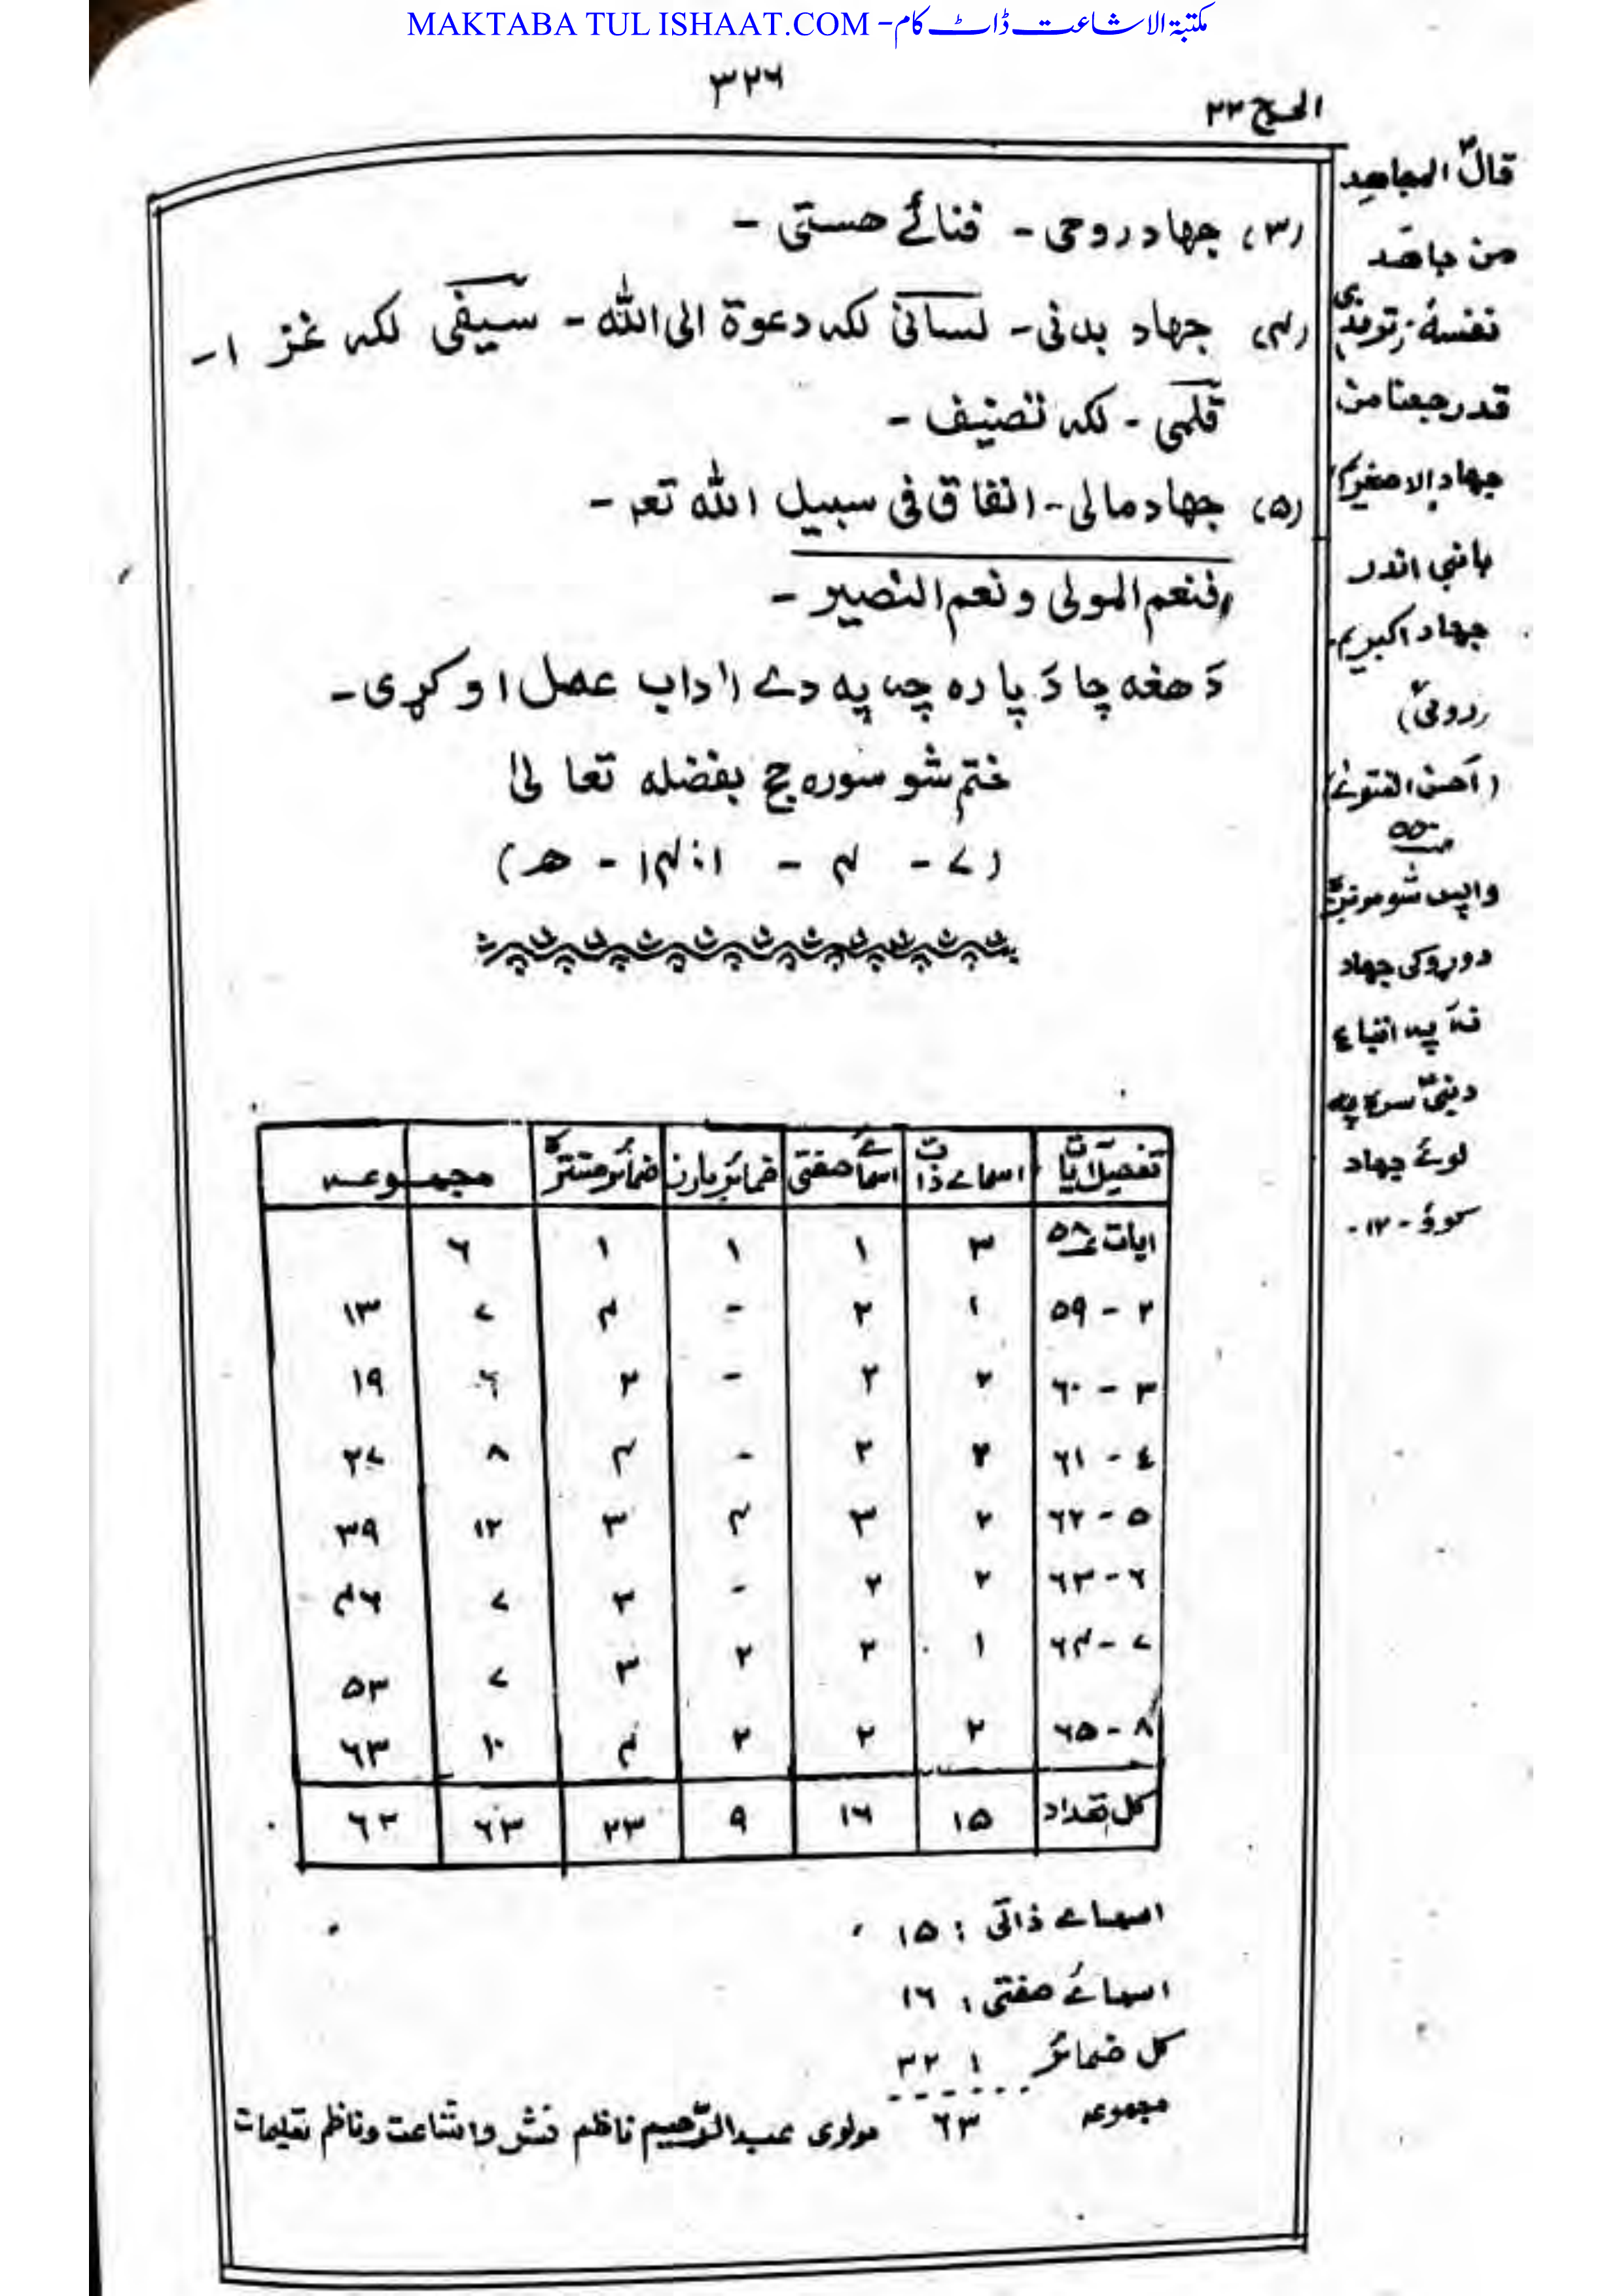 MAKTABA TUL ISHAAT.COM -مکتبة الاشاعت ڈاٹ کام
۳۲۶
الحج ۲۲
(۳) جهاد روحی - فنائے هستی -
(۴) جهاد بدنی - لسانی لکه دعوة الی الله - سیفی لکه غزا -
قلمی - لکه تصنیف -
(۵) جهاد مالی - انفاق فی سبیل الله تعه -
فنعم المولی و نعم النصیر -
دَ هغه چا دَ پاره چه په دے اداب عمل اوکړی -
ختم شو سوره حج بفضله تعالیٰ
(۷ - ۴ - ۱۴۰۱ - ھ)
تفصیل ایات | اسمائے ذات | اسمائے صفتی | ضمائر بارز | ضمائر مستتره | مجموعه
ایات ۵۸ | ۳ | ۱ | ۱ | ۱ | ۶
۲ - ۵۹ | ۱ | ۲ | - | ۴ | ۷ | ۱۳
۳ - ۶۰ | ۲ | ۲ | - | ۲ | ۶ | ۱۹
٤ - ۶۱ | ۲ | ۲ | - | ۴ | ۸ | ۲۷
۵ - ۶۲ | ۲ | ۳ | ۴ | ۳ | ۱۲ | ۳۹
۶ - ۶۳ | ۲ | ۲ | - | ۳ | ۷ | ۴۶
۷ - ۶۴ | ۱ | ۲ | ۲ | ۳ | ۷ | ۵۳
۸ - ۶۵ | ۲ | ۲ | ۲ | ۴ | ۱۰ | ۶۳
کل تعداد | ۱۵ | ۱۶ | ۹ | ۲۳ | ۶۳ | ۶۳
اسمائے ذاتی : ۱۵
اسمائے صفتی : ۱۶
کل ضمائر : ۳۲
مجموعه ۶۳ مولوی عبدالرحیم ناظم نشر و اشاعت و ناظم تعلیمات
قالؐ المجاهد
من جاهد
نفسهٗ - (ترمذی)
قد رجعنا من
جهاد الاصغریم
بانبی اندر
جهاد اکبریم
(رومیؒ)
(احسن الفتویٰ)
۵۵۰
واپس شو مونږ
دوړوکی جهاد
نهٔ په اتباع
د نبیؐ سره په
لوئے جهاد
کوؤ - ۱۲ -